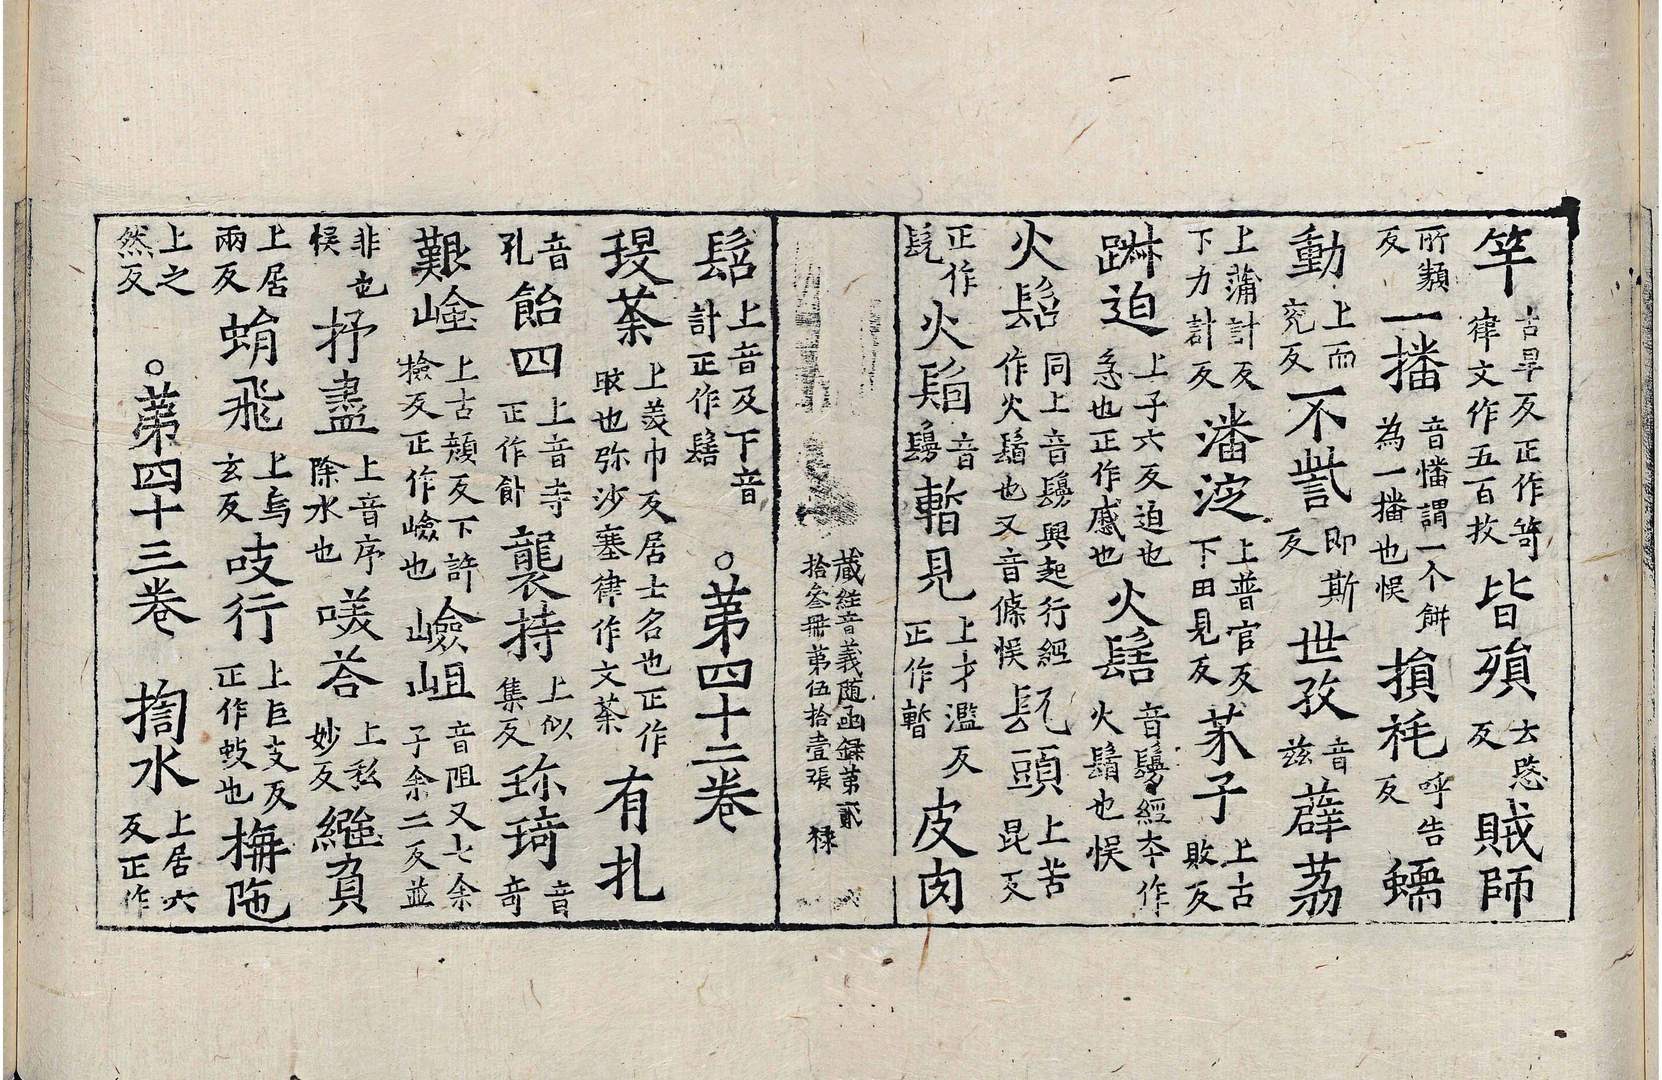 竿古旱反正作笴律文作五百枚皆殞云愍反賊師
所類反一播音憣謂一个餅為一播也悮損秏呼告反蠕
動上而兖反不訾即斯反世孜音兹薜荔
上蒲計反下力計反潘淀上普官反下田見反苿子上古敗反
踧迫上子六反迫也急也正作慼也火髻音鬘經夲作火鬚也悮
火髫同上音鬘興起行經作火鬚也又音條悮髡頭上苦昆反
正作髡火髫音鬘暫見上才濫反正作暫皮肉
藏經音義随函録第貳
拾叄冊第伍拾壹張 禄
髫上音及下音計正作髻 。第四十二卷
珢荼上美巾反居士名也正作㫘也弥沙塞律作文荼有扎
音孔飴四上音寺正作飤襲持上似集反珎琦音奇
艱嶮上古頑反下許撿反正作嶮也嶮岨音阻又七余子余二反並
非也悮抒盡上音序除水也𠵊荅上私妙反繈負
上居兩反蜎飛上烏玄反吱行上巨支反正作蚑也撫陁
上之然反 。第四十三卷 掬水上居六反正作